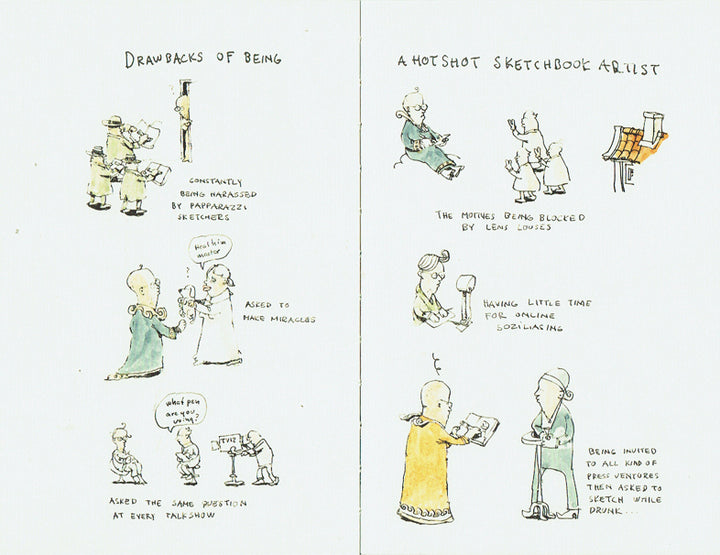 DRAWBACKS OF BEING
CONSTANTLY
BEING HARASSED
BY PAPPARAZZI
SKETCHERS
Heal him
master
?
ASKED TO
MAKE MIRACLES
what pen
are you
using?
TV12
ASKED THE SAME QUESTION
AT EVERY TALKSHOW
A HOTSHOT SKETCHBOOK ARTIST
THE MOTIVES BEING BLOCKED
BY LENS LOUSES
HAVING LITTLE TIME
FOR ONLINE
SOZILIASING
BEING INVITED
TO ALL KIND OF
PRESS VENTURES
THEN ASKED TO
SKETCH WHILE
DRUNK...